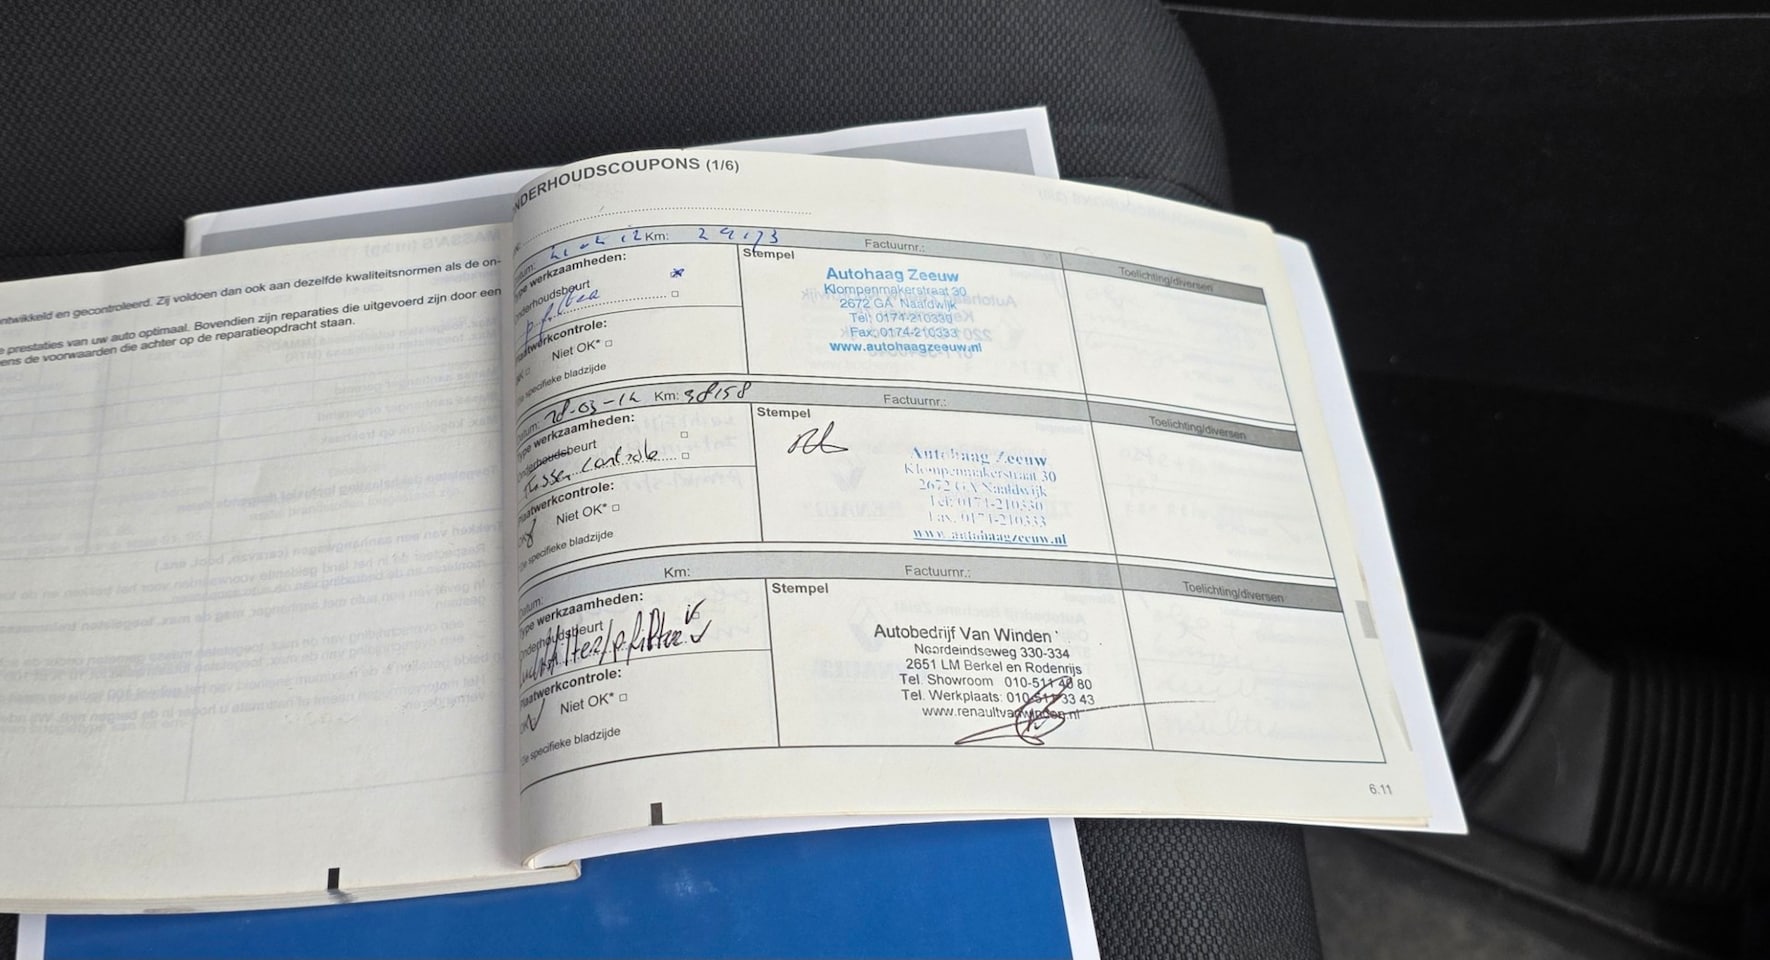 ntwikkeld en gecontroleerd. Zij voldoen dan ook aan dezelfde kwaliteitsnormen als de on-
e prestaties van uw auto optimaal. Bovendien zijn reparaties die uitgevoerd zijn door een
ens de voorwaarden die achter op de reparatieopdracht staan.
NDERHOUDSCOUPONS (1/6)
Datum: Km: 29173 Factuurnr.: Toelichting/diversen
Type werkzaamheden: Stempel
Onderhoudsbeurt
p filter
Plaatwerkcontrole:
OK Niet OK*
*Zie specifieke bladzijde
Autohaag Zeeuw
Klompenmakerstraat 30
2672 GA Naaldwijk
Tel: 0174-210330
Fax: 0174-210333
www.autohaagzeeuw.nl
Datum: 28-03-14 Km: 38158 Factuurnr.: Toelichting/diversen
Type werkzaamheden: Stempel
Onderhoudsbeurt
Tussen controle
Plaatwerkcontrole:
OK Niet OK*
*Zie specifieke bladzijde
Autohaag Zeeuw
Klompenmakerstraat 30
2672 GA Naaldwijk
Tel: 0174-210330
Fax. 0174-210333
www.autohaagzeeuw.nl
Datum: Km: Factuurnr.: Toelichting/diversen
Type werkzaamheden: Stempel
Onderhoudsbeurt
luchtfilter/p.filter
Plaatwerkcontrole:
OK Niet OK*
*Zie specifieke bladzijde
Autobedrijf Van Winden
Noordeindseweg 330-334
2651 LM Berkel en Rodenrijs
Tel. Showroom 010-511 40 80
Tel. Werkplaats: 010-511 33 43
www.renaultvanwinden.nl
6.11